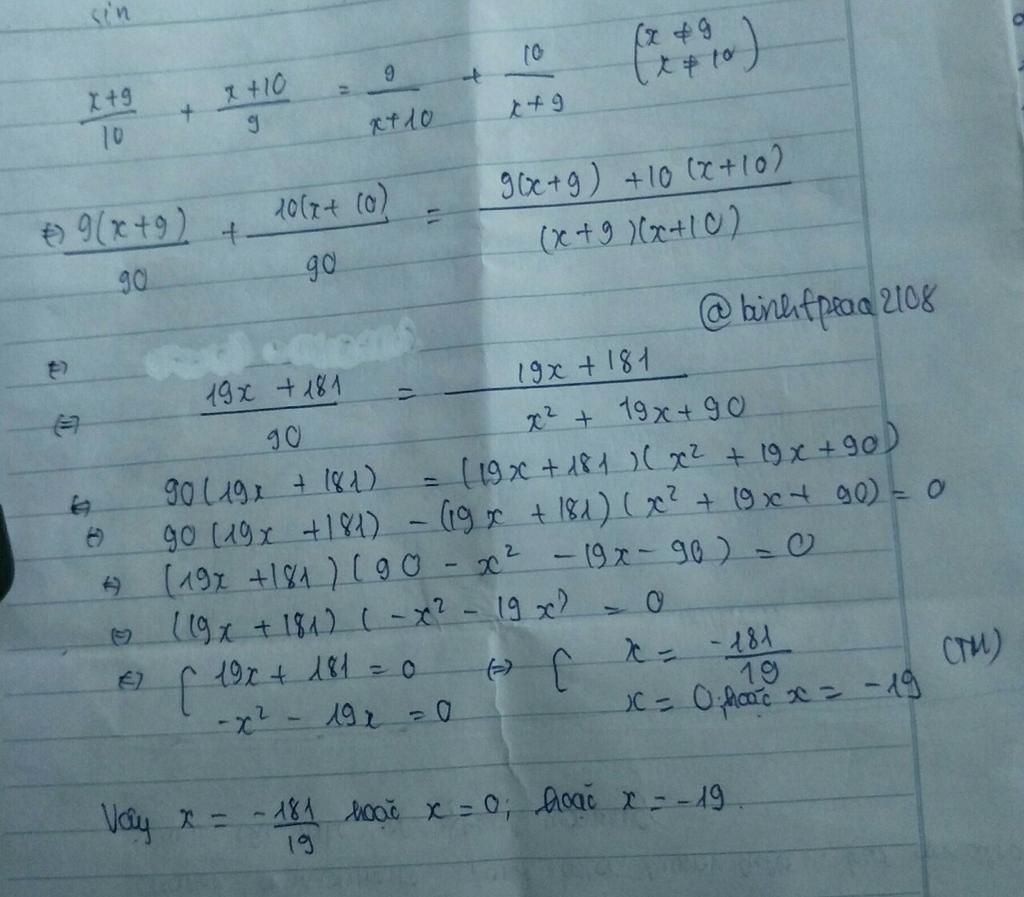 sin
x+9/10 + x+10/9 = 9/x+10 + 10/x+9 (x ≠ 9 x ≠ 10)
⇔ 9(x+9)/90 + 10(x+10)/90 = 9(x+9) + 10(x+10)/(x+9)(x+10)
@binhfpraa2108
⇔
⇔ 19x + 181/90 = 19x + 181/x² + 19x + 90
⇔ 90(19x + 181) = (19x + 181)(x² + 19x + 90)
⇔ 90(19x + 181) - (19x + 181)(x² + 19x + 90) = 0
⇔ (19x + 181)(90 - x² - 19x - 90) = 0
⇔ (19x + 181)(-x² - 19x) = 0
⇔ { 19x + 181 = 0 ⇔ { x = -181/19 (TM)
-x² - 19x = 0 x = 0; hoặc x = -19
Vậy x = -181/19 hoặc x = 0; hoặc x = -19.